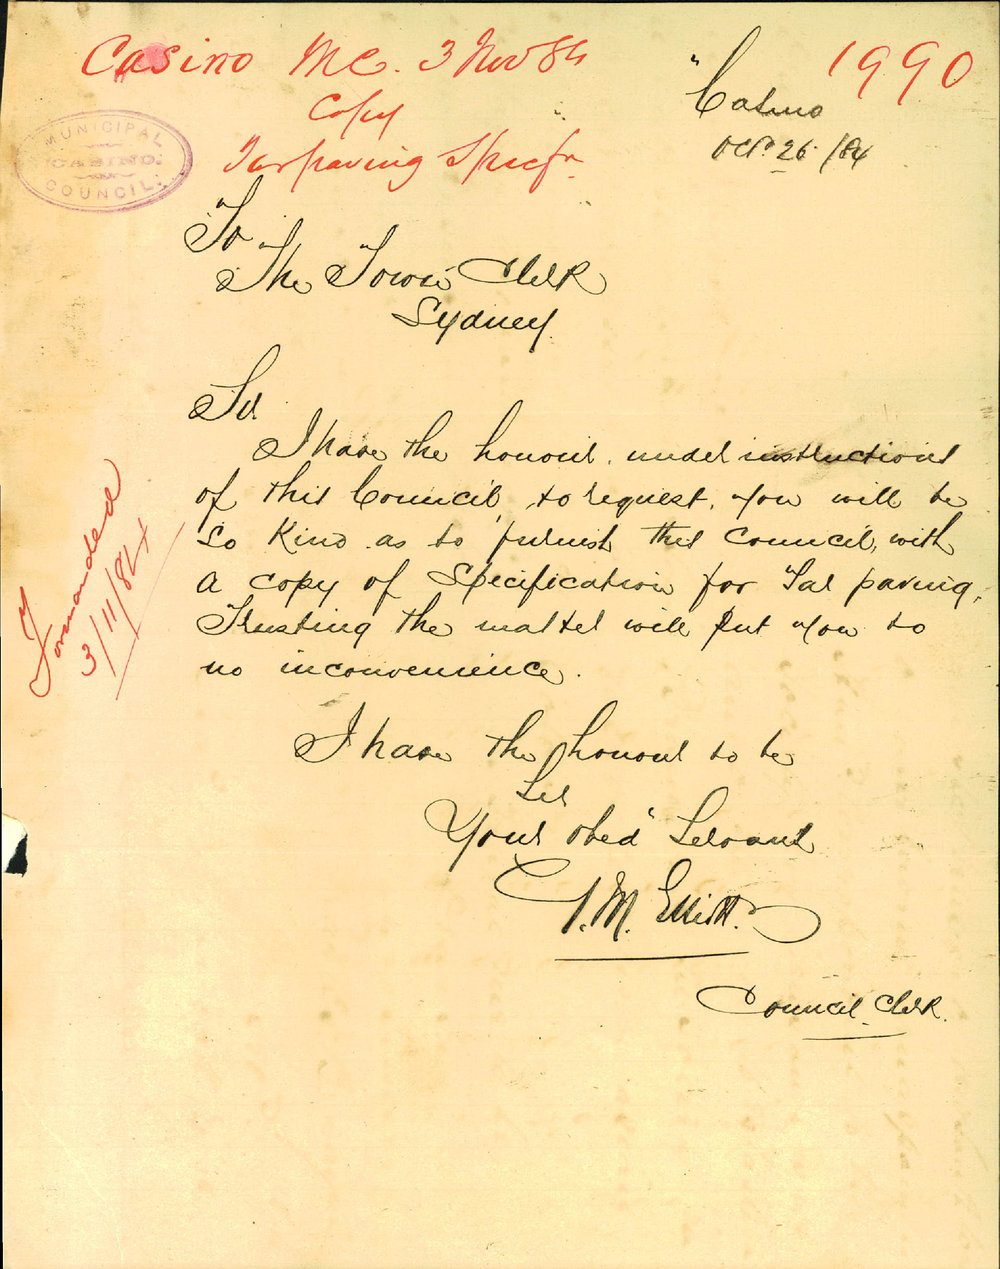 Casino MC. 3 Nov 84
Copy
Tarpaving Specfn
1990
MUNICIPAL
CASINO.
COUNCIL.
Casino
Oct. 26 /84
To
The Town Clerk
Sydney.
Sir.
I have the honour, under instructions
of this Council, to request, you will be
so kind as to furnish this Council, with
a copy of Specification for Tar paving.
Trusting the matter will put you to
no inconvenience.
I have the honour to be
Sir
Your obed Servant
M. Elliott.
Council Clerk.
Forwarded
3/11/84